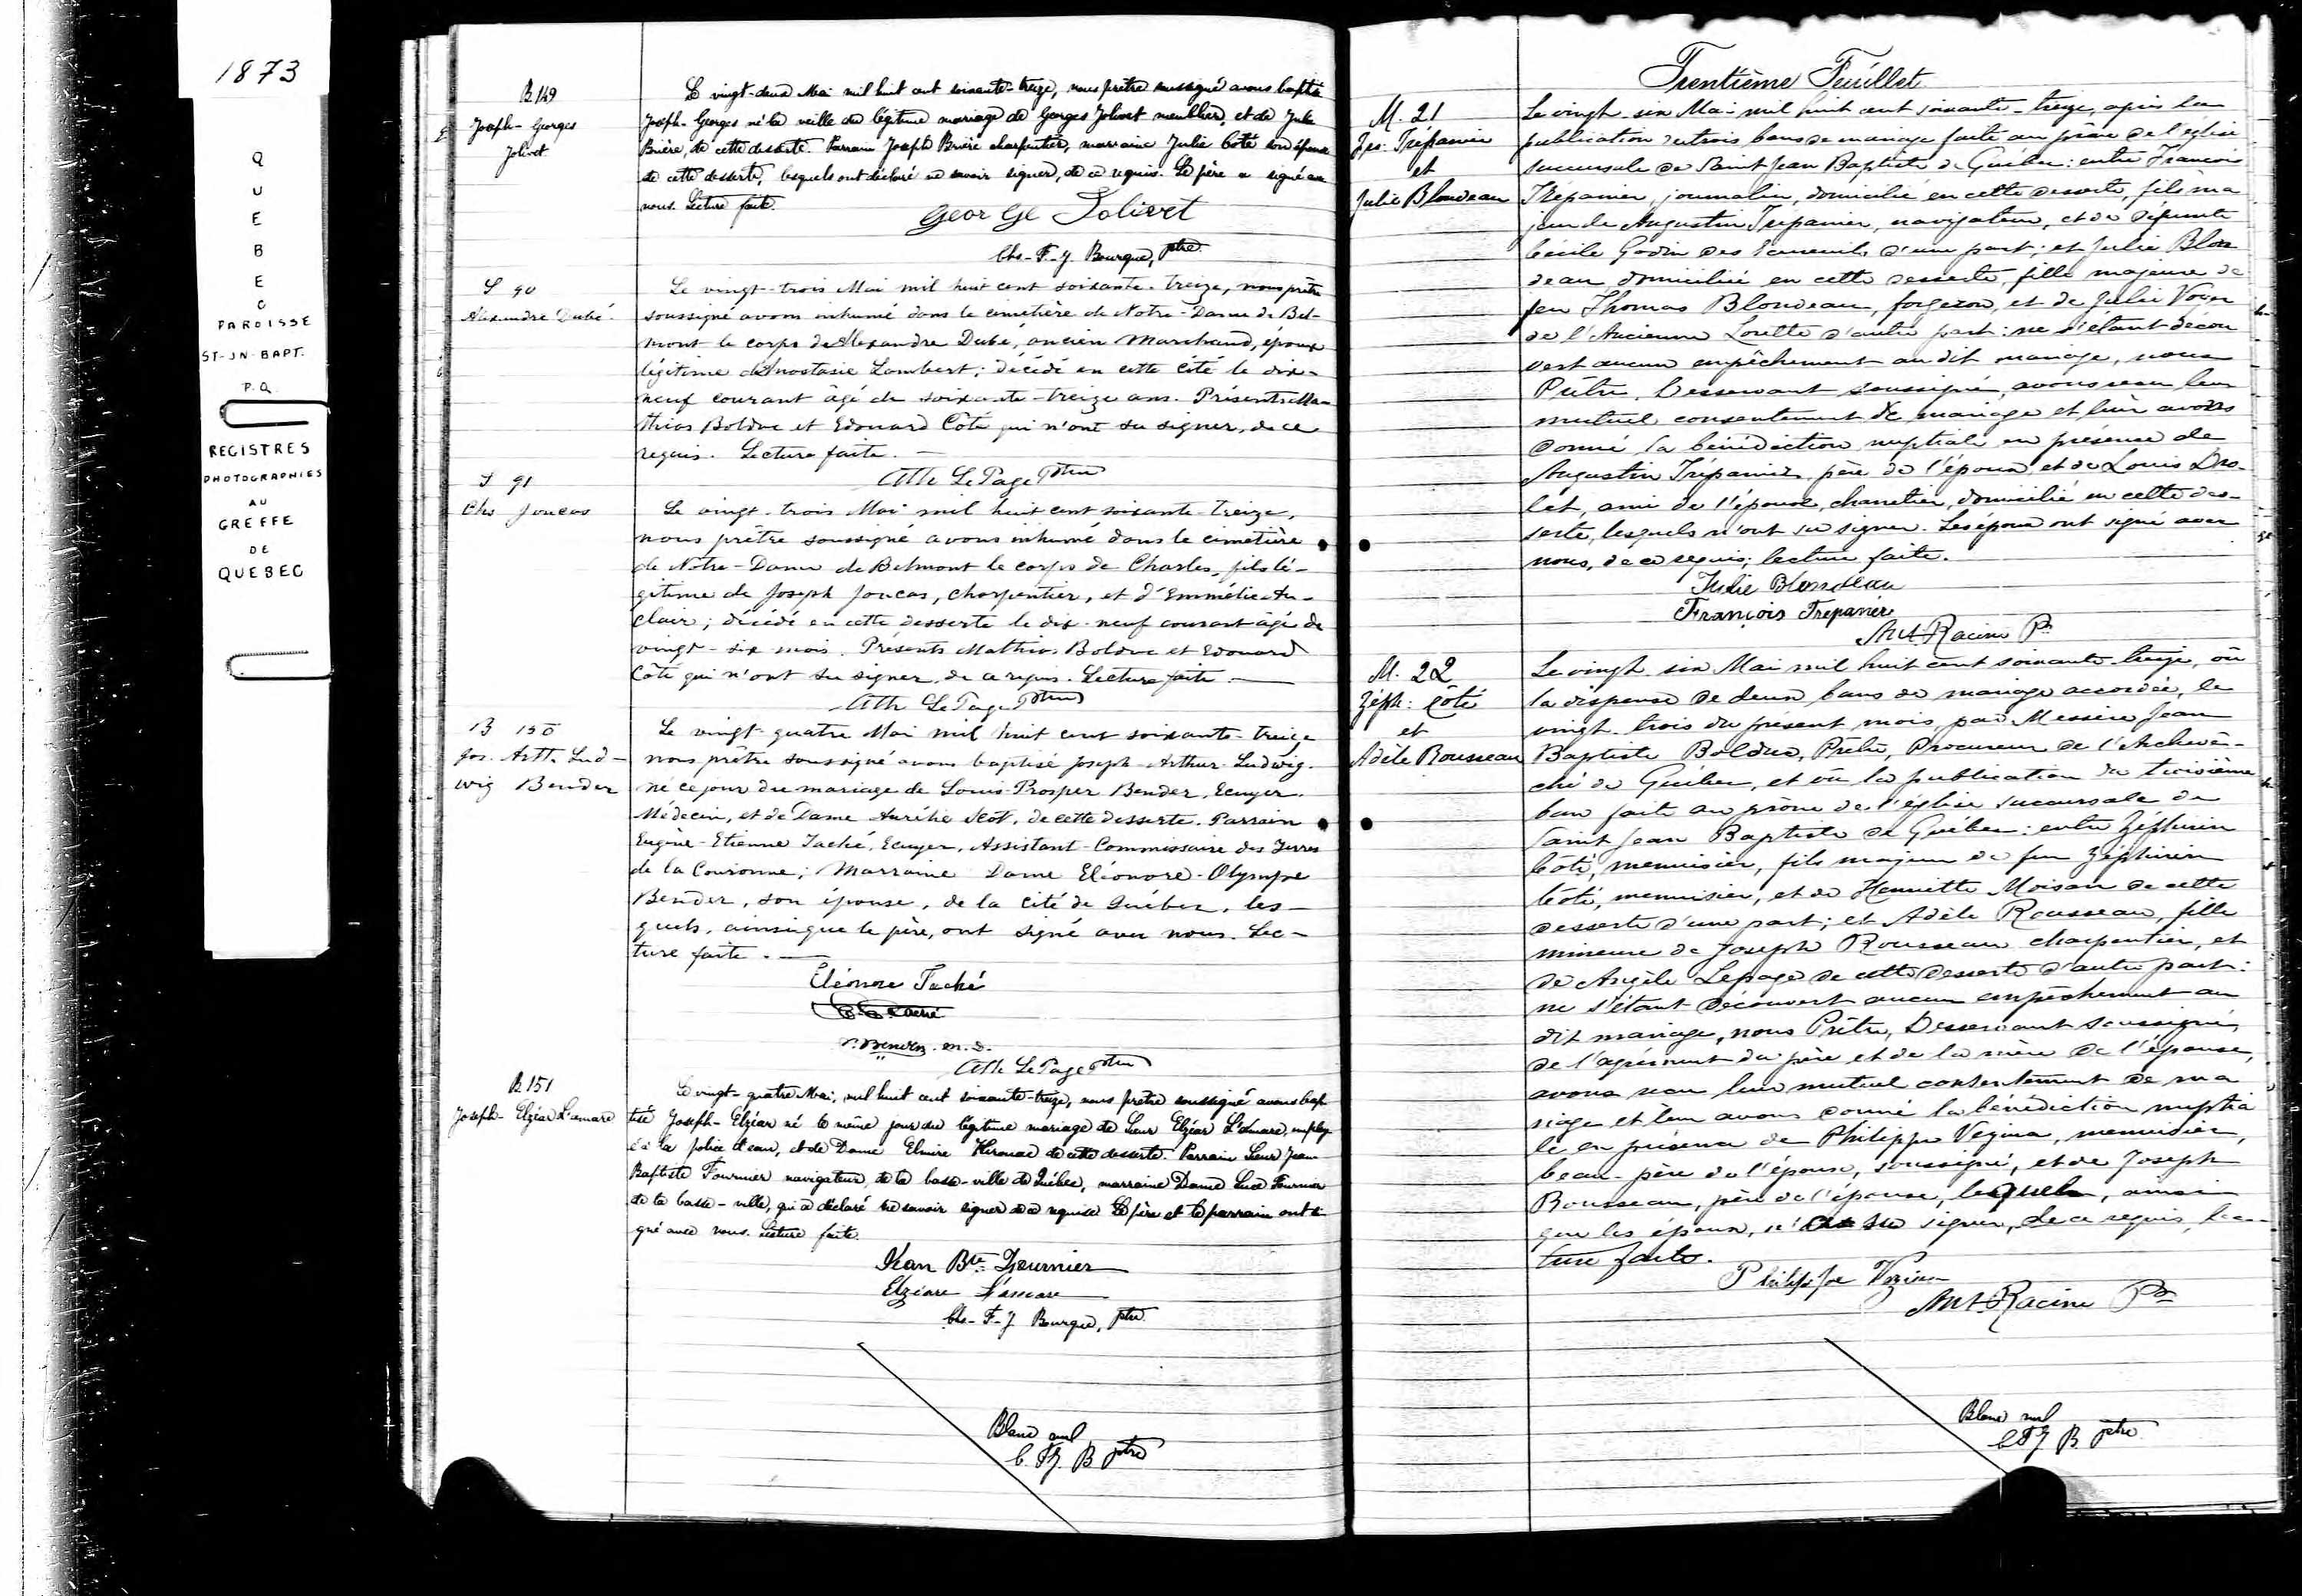 1873
QUEBEC
PAROISSE
ST-JN-BAPT.
P.Q.
REGISTRES
PHOTOGRAPHIES
AU
GREFFE
DE
QUEBEC
B 149
Joseph-Georges
Jolivet
Le vingt-deux Mai mil huit cent soixante-treize, nous prêtre soussigné avons baptisé
Joseph-Georges né la veille du légitime mariage de Georges Jolivet meublier, et de Julie
Brière, de cette desserte. Parrain Joseph Brière charpentier, marraine Julie Côté son épouse
de cette desserte, lesquels ont déclaré ne savoir signer, de ce requis. Le père a signé avec
nous. Lecture faite.
George Jolivet
Chs-F-J. Bourque, ptre
S 90
Alexandre Dubé
Le vingt-trois Mai mil huit cent soixante-treize, nous prêtre
soussigné avons inhumé dans le cimetière de Notre-Dame de Bel-
mont le corps de Alexandre Dubé, ancien Marchand, époux
légitime d'Anastasie Lambert; décédé en cette cité le dix-
neuf courant âgé de soixante-treize ans. Présents Ma-
thias Bolduc et Edouard Côté qui n'ont su signer, de ce
requis. Lecture faite.
Ath LePage Ptre
S 91
Chs Joncas
Le vingt-trois Mai mil huit cent soixante-treize,
nous prêtre soussigné avons inhumé dans le cimetière
de Notre-Dame de Belmont le corps de Charles, fils lé-
gitime de Joseph Joncas, charpentier, et d'Emmélie Au-
clair; décédé en cette desserte le dix-neuf courant âgé de
vingt-six mois. Présents Mathias Bolduc et Edouard
Côté qui n'ont su signer, de ce requis. Lecture faite.
Ath LePage Ptre
B 150
Jos. Arth. Lud-
wig Bender
Le vingt-quatre Mai mil huit cent soixante-treize
nous prêtre soussigné avons baptisé Joseph-Arthur-Ludwig
né ce jour du mariage de Louis-Prosper Bender, Ecuyer,
Médecin, et de Dame Aurélie Scot, de cette desserte. Parrain
Eugène-Etienne Taché, Ecuyer, Assistant-Commissaire des Terres
de la Couronne; Marraine Dame Eléonore-Olympe
Bender, son épouse, de la cité de Québec, les-
quels, ainsi que le père, ont signé avec nous. Lec-
ture faite.
Eléonore Taché
E. E. Taché
P. Bender. m.d.
Ath LePage Ptre
B 151
Joseph-Elzéar L'amare
Le vingt-quatre Mai, mil huit cent soixante-treize, nous prêtre soussigné avons bap-
tisé Joseph-Elzéar né le même jour du légitime mariage de Sieur Elzéar L'amare, employ-
é à la police d'eau, et de Dame Elmire Kirouac de cette desserte. Parrain Sieur Jean
Baptiste Fournier navigateur, de la basse-ville de Québec, marraine Dame Luce Fournier
de la basse-ville, qui a déclaré ne savoir signer de ce requise. Le père et le parrain ont si-
gné avec nous. Lecture faite.
Jean Bte Fournier
Elzéare L'amare
Chs-F-J Bourque, ptre
Blanc nul
C. F.J. B ptre
Trentième Feuillet
M. 21
Frs. Trépanier
et
Julie Blondeau
Le vingt-six Mai mil huit cent soixante-treize, après la
publication de trois bans de mariage faite au prône de l'église
succursale de Saint Jean Baptiste de Québec: entre François
Trépanier, journalier, domicilié en cette desserte, fils ma
jeur de Augustin Trépanier, navigateur, et de défunte
Cécile Godin d'une part; et Julie Blon
deau, domiciliée en cette desserte, fille majeure de
feu Thomas Blondeau, forgeron, et de Julie Voyer
de l'Ancienne Lorette d'autre part: ne s'étant décou
vert aucun empêchement au dit mariage, nous
Prêtre, Desservant soussigné, avons reçu leur
mutuel consentement de mariage et leur avons
donné la bénédiction nuptiale en présence de
Augustin Trépanier père de l'époux et de Louis Dro-
let, ami de l'épouse, charretier, domicilié en cette des-
serte, lesquels n'ont su signer. Les époux ont signé avec
nous, de ce requis; lecture faite.
Julie Blondeau
François Trepanier
Ant. Racine Ptre
M. 22
Zéph: Côté
et
Adèle Rousseau
Le vingt-six Mai mil huit cent soixante-treize, vu
la dispense de deux bans de mariage accordée, le
vingt-trois du présent mois, par Messire Jean
Baptiste Bolduc, Prêtre, Procureur de l'Archevê-
ché de Québec, et vu la publication du troisième
ban faite au prône de l'église succursale de
Saint Jean Baptiste de Québec: entre Zéphirin
Côté, menuisier, fils majeur de feu Zéphirin
Côté, menuisier, et de Henriette Moisan de cette
desserte d'une part; et Adèle Rousseau, fille
mineure de Joseph Rousseau charpentier, et
de Angèle Lepage de cette desserte d'autre part:
ne s'étant découvert aucun empêchement au
dit mariage, nous Prêtre, Desservant soussigné,
de l'agrément du père et de la mère de l'épouse,
avons reçu leur mutuel consentement de ma
riage et leur avons donné la bénédiction nuptia
le en présence de Philippe Vezina, menuisier,
beau-père de l'époux, soussigné, et de Joseph
Rousseau, père de l'épouse, lesquels, ainsi
que les époux, n'ont su signer, de ce requis, lec-
ture faite.
Philippe Vezina
Ant. Racine Ptre
Blanc nul
C F J B. ptre